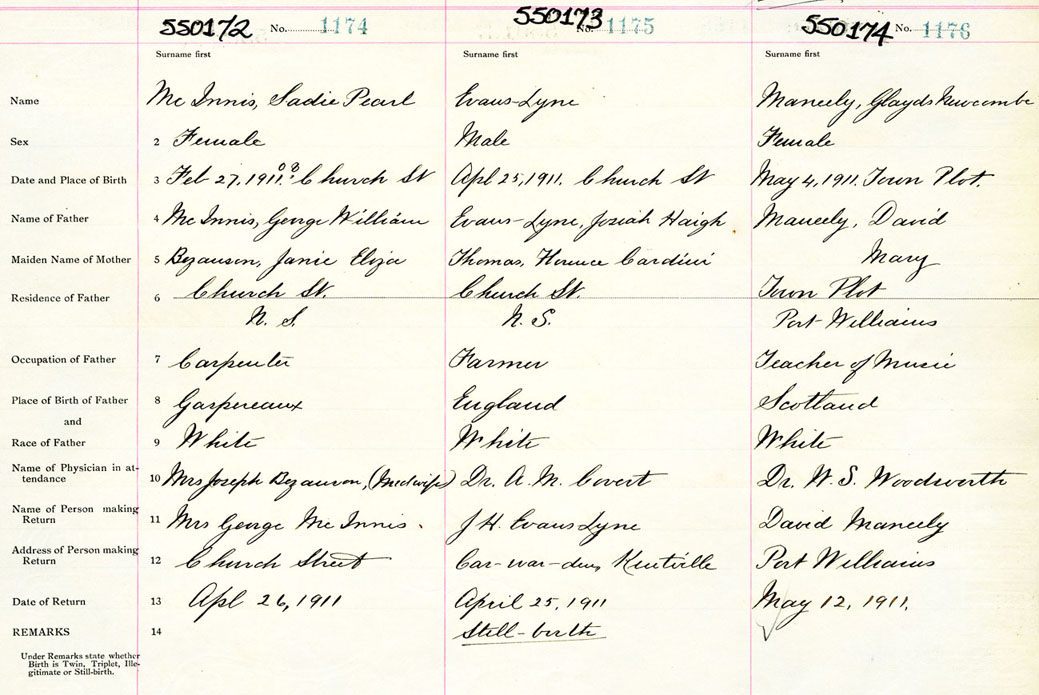 550172 No. 1174 550173 No. 1175 550174 No. 1176
Surname first Surname first Surname first
Name Mc Innis, Sadie Pearl Evans-Lyne Maneely, Glayds Newcombe
Sex 2 Female Male Female
Date and Place of Birth 3 Feb 27, 1911. Church St Apl 25, 1911. Church St May 4, 1911. Town Plot.
Name of Father 4 Mc Innis, George William Evans-Lyne, Josiah Haigh Maneely, David
Maiden Name of Mother 5 Bezanson, Janie Eliza Thomas, Florence Mary
Residence of Father 6 Church St. Church St. Town Plot
N. S. N. S. Port Williams
Occupation of Father 7 Carpenter Farmer Teacher of Music
Place of Birth of Father 8 Gaspereaux England Scotland
and
Race of Father 9 White White White
Name of Physician in at-
tendance 10 Mrs Joseph Bezanson, (Midwife) Dr. A. M. Covert Dr. W. S. Woodworth
Name of Person making
Return 11 Mrs George Mc Innis. J. H. Evans Lyne David Maneely
Address of Person making
Return 12 Church Street Car-war-den, Kentville Port Williams
Date of Return 13 Apl 26, 1911 April 25, 1911 May 12, 1911.
REMARKS 14 Still-birth
Under Remarks state whether
Birth is Twin, Triplet, Ille-
gitimate or Still-birth.